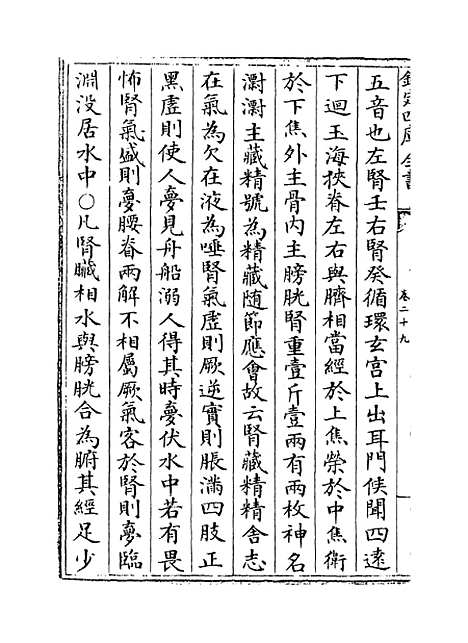 欽定四庫全書
卷二十九
五音也左腎壬右腎癸循環玄宫上出耳門候聞四遠
下迴玉海挾脊左右與臍相當經於上焦榮於中焦衛
於下焦外主骨内主膀胱腎重壹斤壹兩有兩枚神名
㶆㶆主藏精號為精藏随節應會故云腎藏精精舍志
在氣為欠在液為唾腎氣虚則厥逆實則脹滿四肢正
黑虚則使人夢見舟船溺人得其時夢伏水中若有畏
怖腎氣盛則夢腰脊兩解不相屬厥氣客於腎則夢臨
淵没居水中○凡腎臟相水與膀胱合為腑其經足少